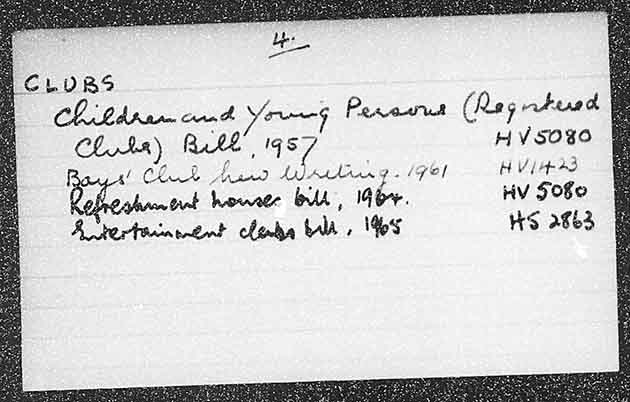 4.
CLUBS
Children and Young Persons (Registered
Clubs) Bill, 1957 HV5080
Boys' Club new Writing. 1961 HV1423
Refreshment houses bill, 1964. HV 5080
Entertainment clubs bill, 1965 HS 2863